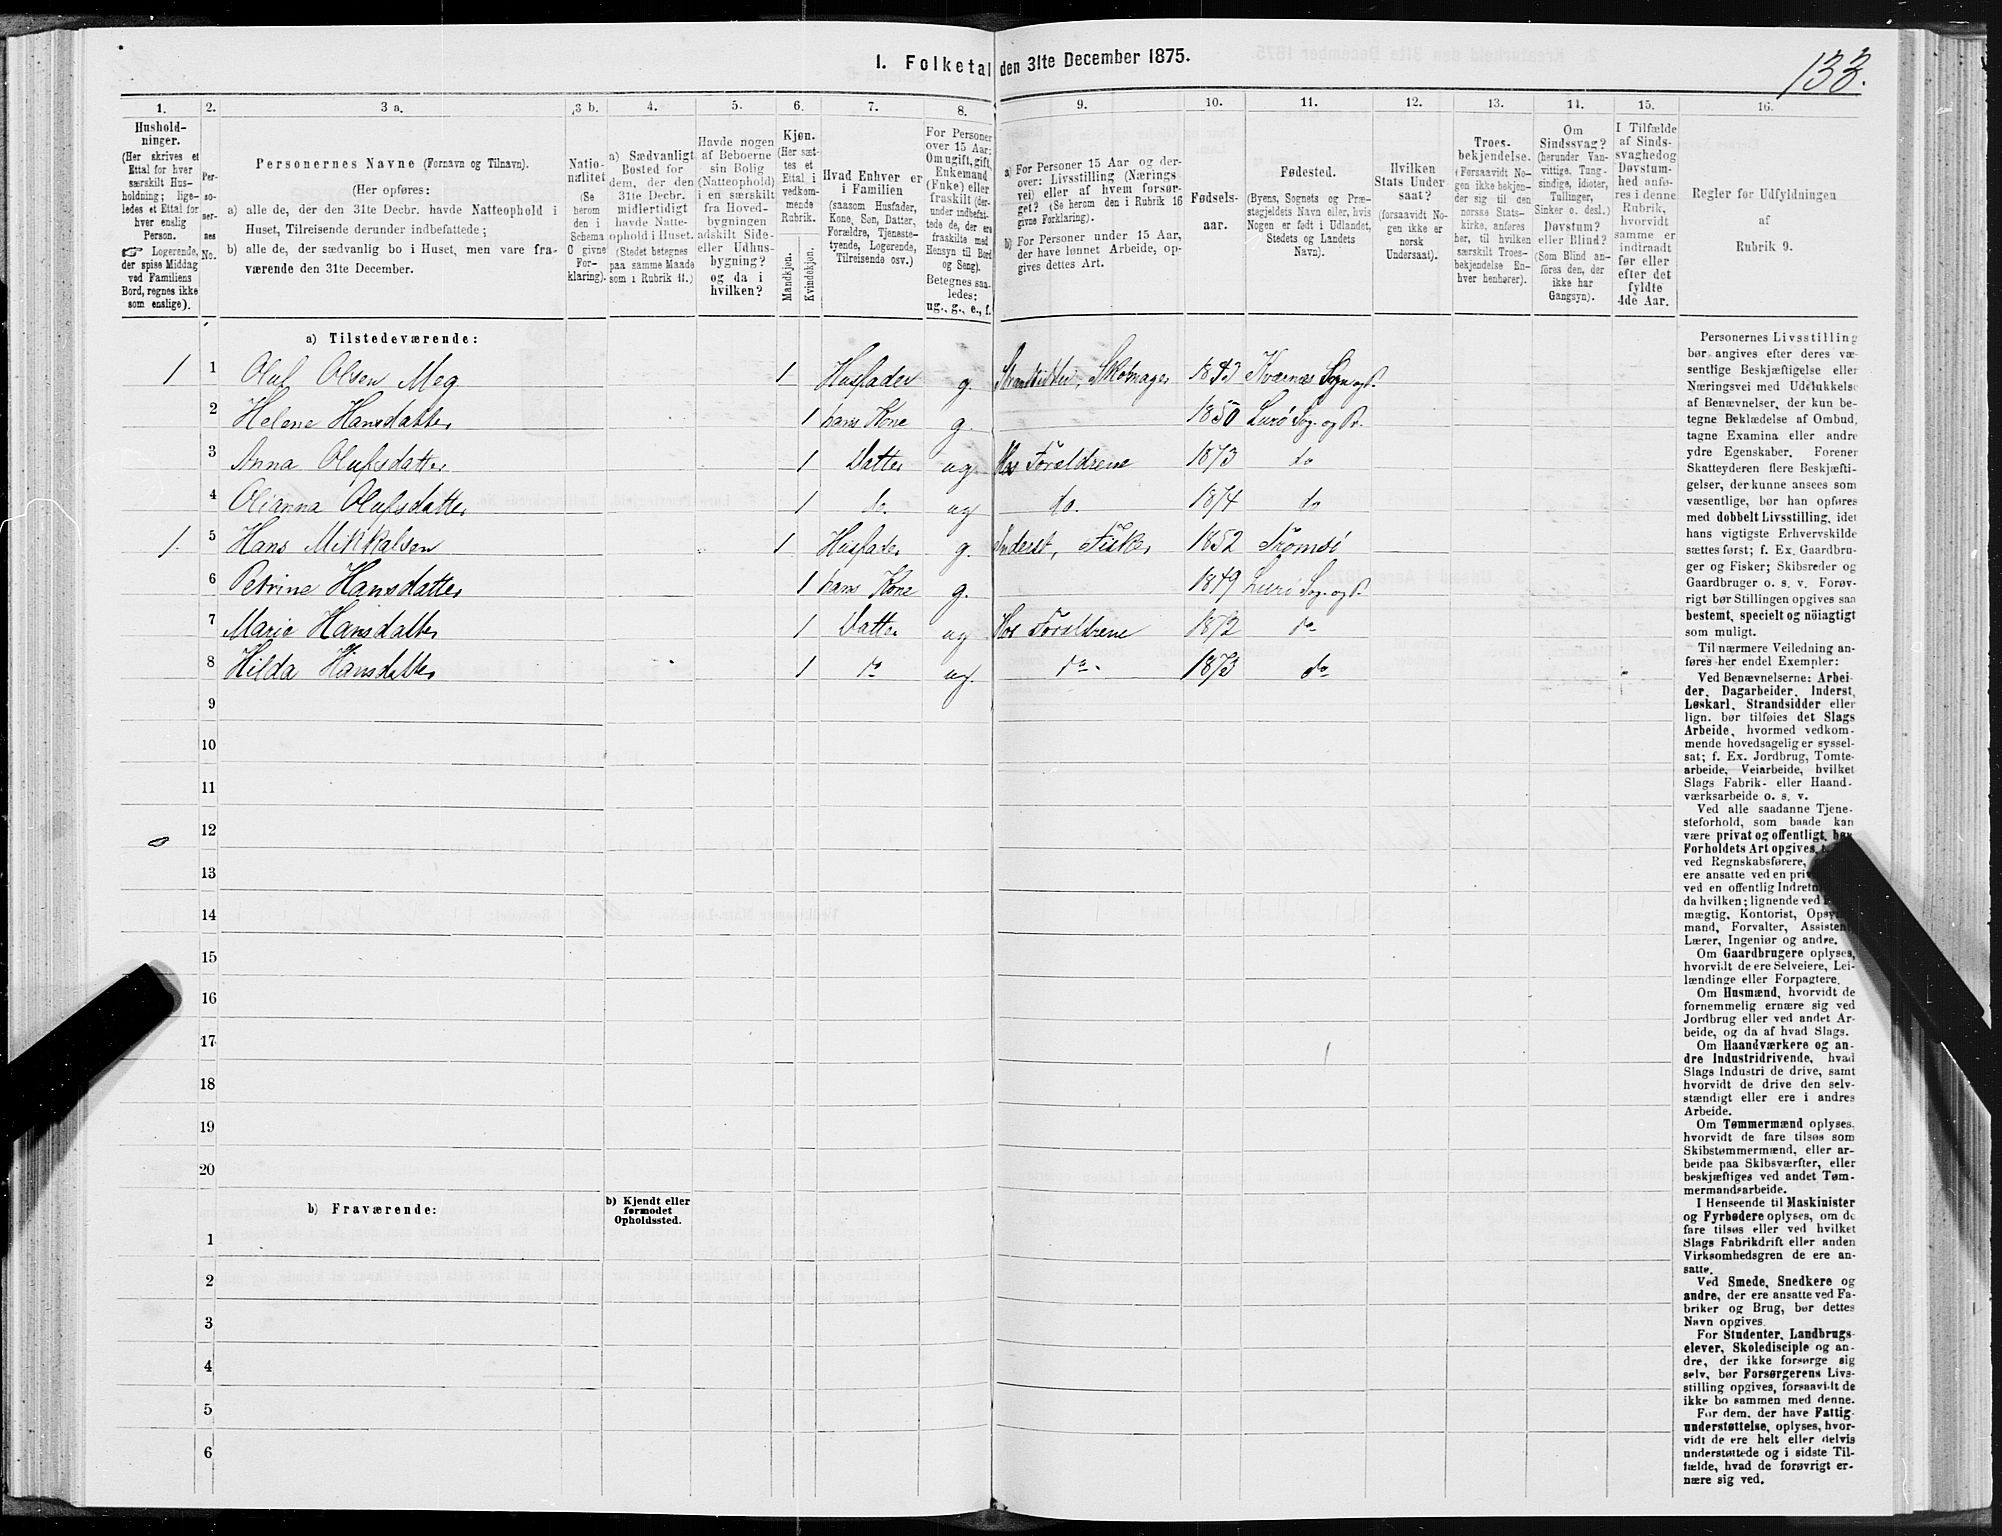 133.
1. Folketal den 31te December 1875.
1. 2. 3 a. 3 b. 4. 5. 6. 7. 8. 9. 10. 11. 12. 13. 14. 15. 16.
Hushold-
ninger.
(Her skrives et
Ettal for hver
særskilt Hus-
holdning; lige-
ledes et Ettal for
hver enslig
Person.
☞ Logerende,
der spise Middag
ved Familiens
Bord, regnes ikke
som enslige).
Per-
so-
ner-
nes
No.
Personernes Navne (Fornavn og Tilnavn).
(Her opføres:
a) alle de, der den 31te Decbr. havde Natteophold i
Huset, Tilreisende derunder indbefattede;
b) alle de, der sædvanlig bo i Huset, men vare fra-
værende den 31te December.
Natio-
nalitet
(Se
herom
den i
Schema
O givne
For-
klaring).
a) Sædvanligt
Bosted for
dem, der den
31te Decbr.
midlertidigt
havde Natte-
ophold i Huset.
(Stedet betegnes
paa samme Maade
som i Rubrik 11.)
Havde nogen
af Beboerne
sin Bolig
(Natteophold)
i en særskilt
fra Hoved-
bygningen
adskilt Side-
eller Udhus-
bygning?
og da i
hvilken?
Kjøn.
(Her sæt-
tes et
Ettal i
vedkom-
mende
Rubrik.
Mandkjøn.
Kvindekjøn.
Hvad Enhver er
i Familien
(saasom Husfader,
Kone, Søn, Datter,
Forældre, Tjeneste-
tyende, Logerende,
Tilreisende osv.)
For Personer
over 15 Aar:
Om ugift, gift,
Enkemand
(Enke) eller
fraskilt (der-
under indbefat-
tede de, der ere
fraskilte med
Hensyn til Bord
og Seng).
Betegnes saa-
ledes:
ug., g., e., f.
a) For Personer 15 Aar og der-
over: Livsstilling (Nærings
vei) eller af hvem forsør-
get? (Se herom den i Rubrik 16
givne Forklaring).
b) For Personer under 15 Aar,
der have lønnet Arbeide, op-
gives dettes Art.
Fødsels-
aar.
Fødested.
(Byens, Sognets og Præ-
stegjeldets Navn eller, hvis
Nogen er født i Udlandet,
Stedets og Landets
Navn).
Hvilken
Stats Under
saat?
(forsaavidt No-
gen ikke er
norsk
Undersaat).
Troes-
bekjendelse.
(Forsaavidt No-
gen ikke bekjen-
der sig til den
norske Stats-
kirke, anføres
her, til hvilken
særskilt Troes-
bekjendelse En-
hver henhører).
Om
Sindssvag?
(herunder Van-
vittige, Tung-
sindige, Idioter,
Tullinger,
Sinker o. desl.)
Døvstum?
eller Blind?
(Som Blind an-
føres den, der
ikke har
Gangsyn).
I Tilfælde
af Sinds-
svaghed og
Døvstum-
hed anfø-
res i denne
Rubrik,
hvorvidt
samme er
indtraadt
før eller
efter det
fyldte
4de Aar.
Regler for Udfyldningen
af
Rubrik 9.
a) Tilstedeværende:
1 1 Oluf Olsen Meg 1 Husfader g. Strandsidder, Skomager 1843 Kvernæs Sogn og P.
2 Helene Hansdatter 1 hans Kone g. 1850 Lurø Sog. og Pr.
3 Anna Olufsdatter 1 Datter ug Hos Forældrene 1873 do
4 Olianna Olufsdatter 1 do. ug do. 1874 do
1. 5 Hans Mikkalsen 1 Husfader g. Inderst, Fisker 1852 Tromsø
6 Petrine Hansdatter 1 hans Kone g. 1849 Lurø Sog. og P.
7 Marie Hansdatter 1 Datter ug Hos Forældrene 1872 do
8 Hilda Hansdatter 1 do ug. do. 1873 do
9
10
11
12
13
14
15
16
17
18
19
20
b) Fraværende:
b) Kjendt eller
formodet
Opholdssted.
1
2
3
4
5
6
Personernes Livsstilling
bør angives efter deres væ-
sentlige Beskjæftigelse eller
Næringsvei med Udelukkelse
af Benævnelser, der kun be-
tegne Beklædelse af Ombud,
tagne Examina eller andre
ydre Egenskaber. Forener
Skatteyderen flere Beskjæfti-
gelser, der kunne ansees som
væsentlige, bør han opføres
med dobbelt Livsstilling, idet
hans vigtigste Erhvervskilde
sættes først; f. Ex. Gaardbru-
ger og Fisker; Skibsreder og
Gaardbruger o. s. v. Forøv-
rigt bør Stillingen opgives saa
bestemt, specielt og nöiagtigt
som muligt.
Til nærmere Veiledning an-
føres her endel Exempler:
Ved Benævnelserne: Arbei-
der, Dagarbeider, Inderst,
Løskarl, Strandsidder eller
lign. bør tilføies det Slags
Arbeide, hvormed vedkom-
mende hovedsagelig er syssel-
sat; f. Ex. Jordbrug, Tomte-
arbeide, Veiarbeide, hvilket
Slags Fabrik- eller Haand-
værksarbeide o. s. v.
Ved alle saadanne Tjene-
steforhold, som baade kan
være privat og offentligt, bør
Forholdets Art opgives,
ved Regnskabsførere,
ere ansatte ved en
ved en offentlig
da hvilken; lignende ved
mægtig, Kontorist,
mand, Forvalter,
Lærer, Ingeniør og andre.
Om Gaardbrugere oplyses,
hvorvidt de ere Selveiere, Lei-
lændinge eller Forpagtere.
Om Husmænd, hvorvidt de
fornemmelig ernære sig ved
Jordbrug eller ved andet Ar-
beide, og da af hvad Slags.
Om Haandværkere og an-
dre Industridrivende, hvad
Slags Industri de drive, samt
hvorvidt de drive den selv-
stændigt eller ere i andres
Arbeide.
Om Tømmermænd oplyses,
hvorvidt de fare tilsøs som
Skibstømmermænd, eller ar-
beide paa Skibsværfter, eller
beskjæftiges ved andet Tøm-
mermandsarbeide.
I Henseende til Maskinister
og Fyrbødere oplyses, om de
fare tilsøs eller ved hvilket
Slags Fabrikdrift eller anden
Virksomhedsgren de ere an-
satte.
Ved Smede, Snedkere og
andre, der ere ansatte ved Fa-
briker og Brug, bør dettes
Navn opgives.
For Studenter, Landbrugs-
elever, Skoledisciple og an-
dre, der ikke forsørge sig
selv, bør Forsørgerens Livs-
stilling opgives, forsaavidt de
ikke bo sammen med denne.
For dem, der have Fattig-
understøttelse, oplyses, hvor-
vidt de ere helt eller delvis
understøttede og i sidste Til-
fælde, hvad de forøvrigt er-
nære sig ved.